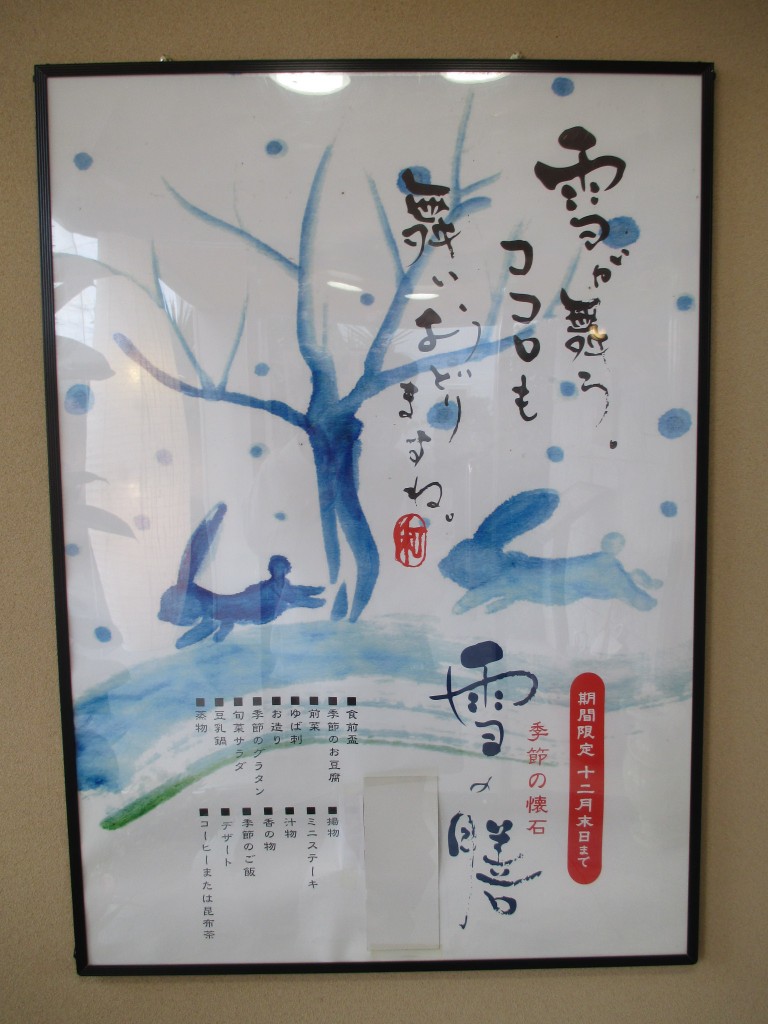 雪が舞う、
ココロも
舞いおどり
ますね。
期間限定 十二月末日まで
季節の懐石
雪の膳
■食前盃
■季節のお豆腐
■前菜
■ゆば刺
■お造り
■季節のグラタン
■旬菜サラダ
■豆乳鍋
■蒸物
■揚物
■ミニステーキ
■汁物
■香の物
■季節のご飯
■デザート
■コーヒーまたは昆布茶